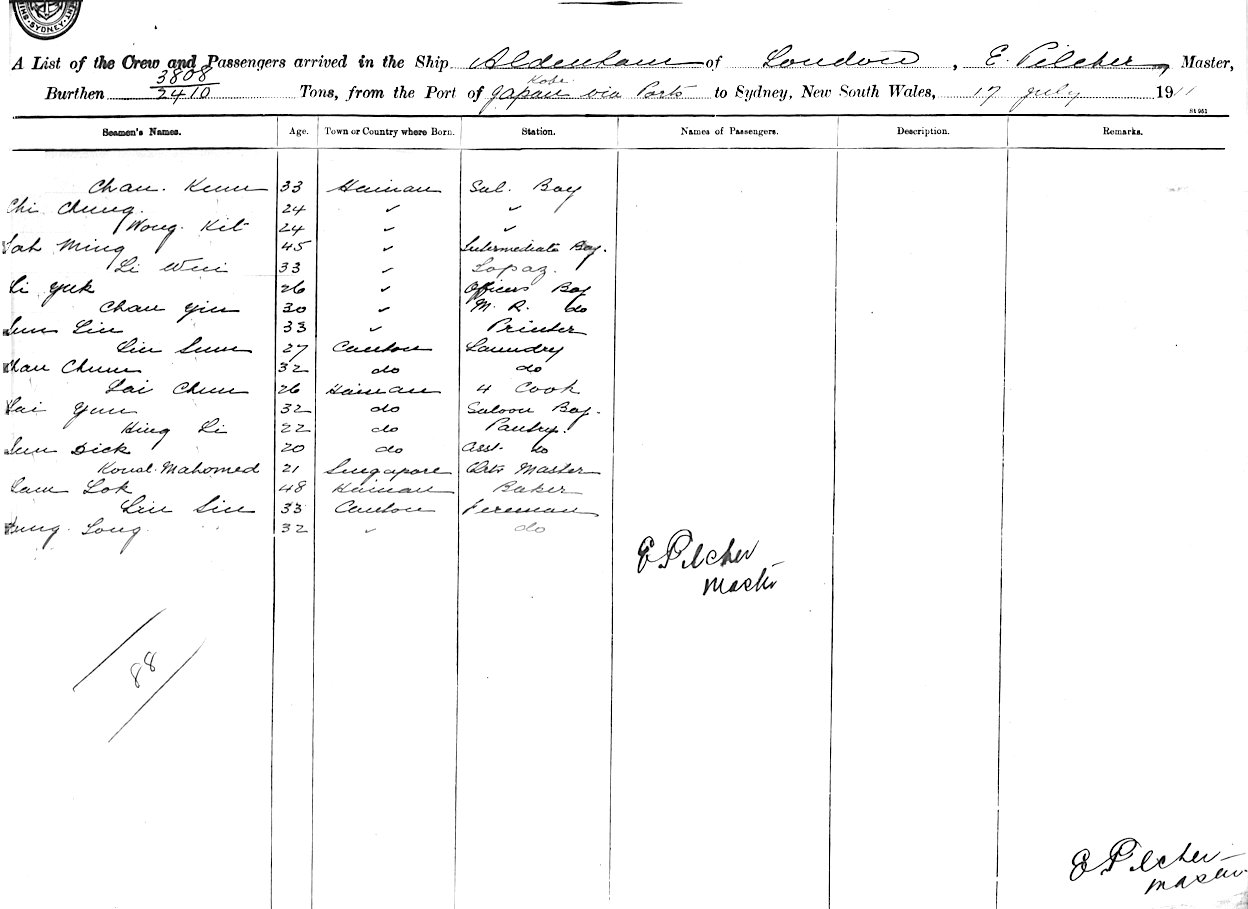 SYDNEY
A List of the Crew and Passengers arrived in the Ship Aldenham of London, E. Pilcher, Master,
Burthen 3808 / 2410 Tons, from the Port of Kobe Japan via Ports to Sydney, New South Wales, 17 July 1911
St 951
Seamen's Names. Age. Town or Country where Born. Station. Names of Passengers. Description. Remarks.
Chan Kum 33 Hainan Sal. Boy
Chi Chung. 24 ✓ ✓
Wong Kit 24 ✓ ✓
Ming 45 ✓ Intermediate Boy.
Li Wui 33 ✓ Lopaz.
Li Yuk 26 ✓ Officers Boy
Chan Yin 30 ✓ M. R. do
Sum Lin 33 ✓ Printer
Lin Sum 27 Canton Laundry
Chan Chum 32 do do
Lai Chun 26 Hainan 4 Cook
Lai Yun 32 do Saloon Boy.
Hing Li 22 do Pantry.
Sum Dick 20 do Asst. do
Mahomed 21 Singapore Qrts Master
Lam Lok 48 Hainan Baker
Lin Sin 33 Canton Fireman
Long. 32 ✓ do
E Pilcher
Master
88
E Pilcher
Master